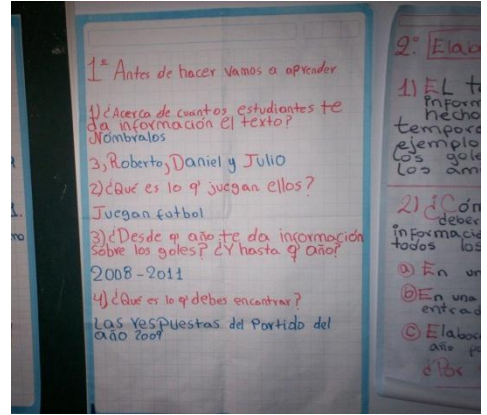 1º Antes de hacer vamos a aprender
1) ¿Acerca de cuantos estudiantes te
da información el texto?
Nómbralos
3, Roberto, Daniel y Julio
2) ¿Qué es lo q' juegan ellos?
Juegan futbol
3) ¿Desde q' año te da información
sobre los goles? ¿Y hasta q' año?
2008-2011
4) ¿Qué es lo q' debes encontrar?
Las respuestas del Partido del
año 2009
2º Elab
1) EL t
inform
hecho
tempora
ejemplo
Los gole
Los am
2) ¿Cóm
deber
informació
todos los
a) En un
b) En una
entrad
c) Elabor
año
¿Por